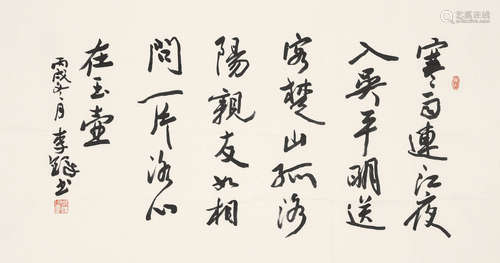 寒雨連江夜
入吳平明送
客楚山孤洛
陽親友如相
問一片冰心
在玉壺
丙戌月李鐸书